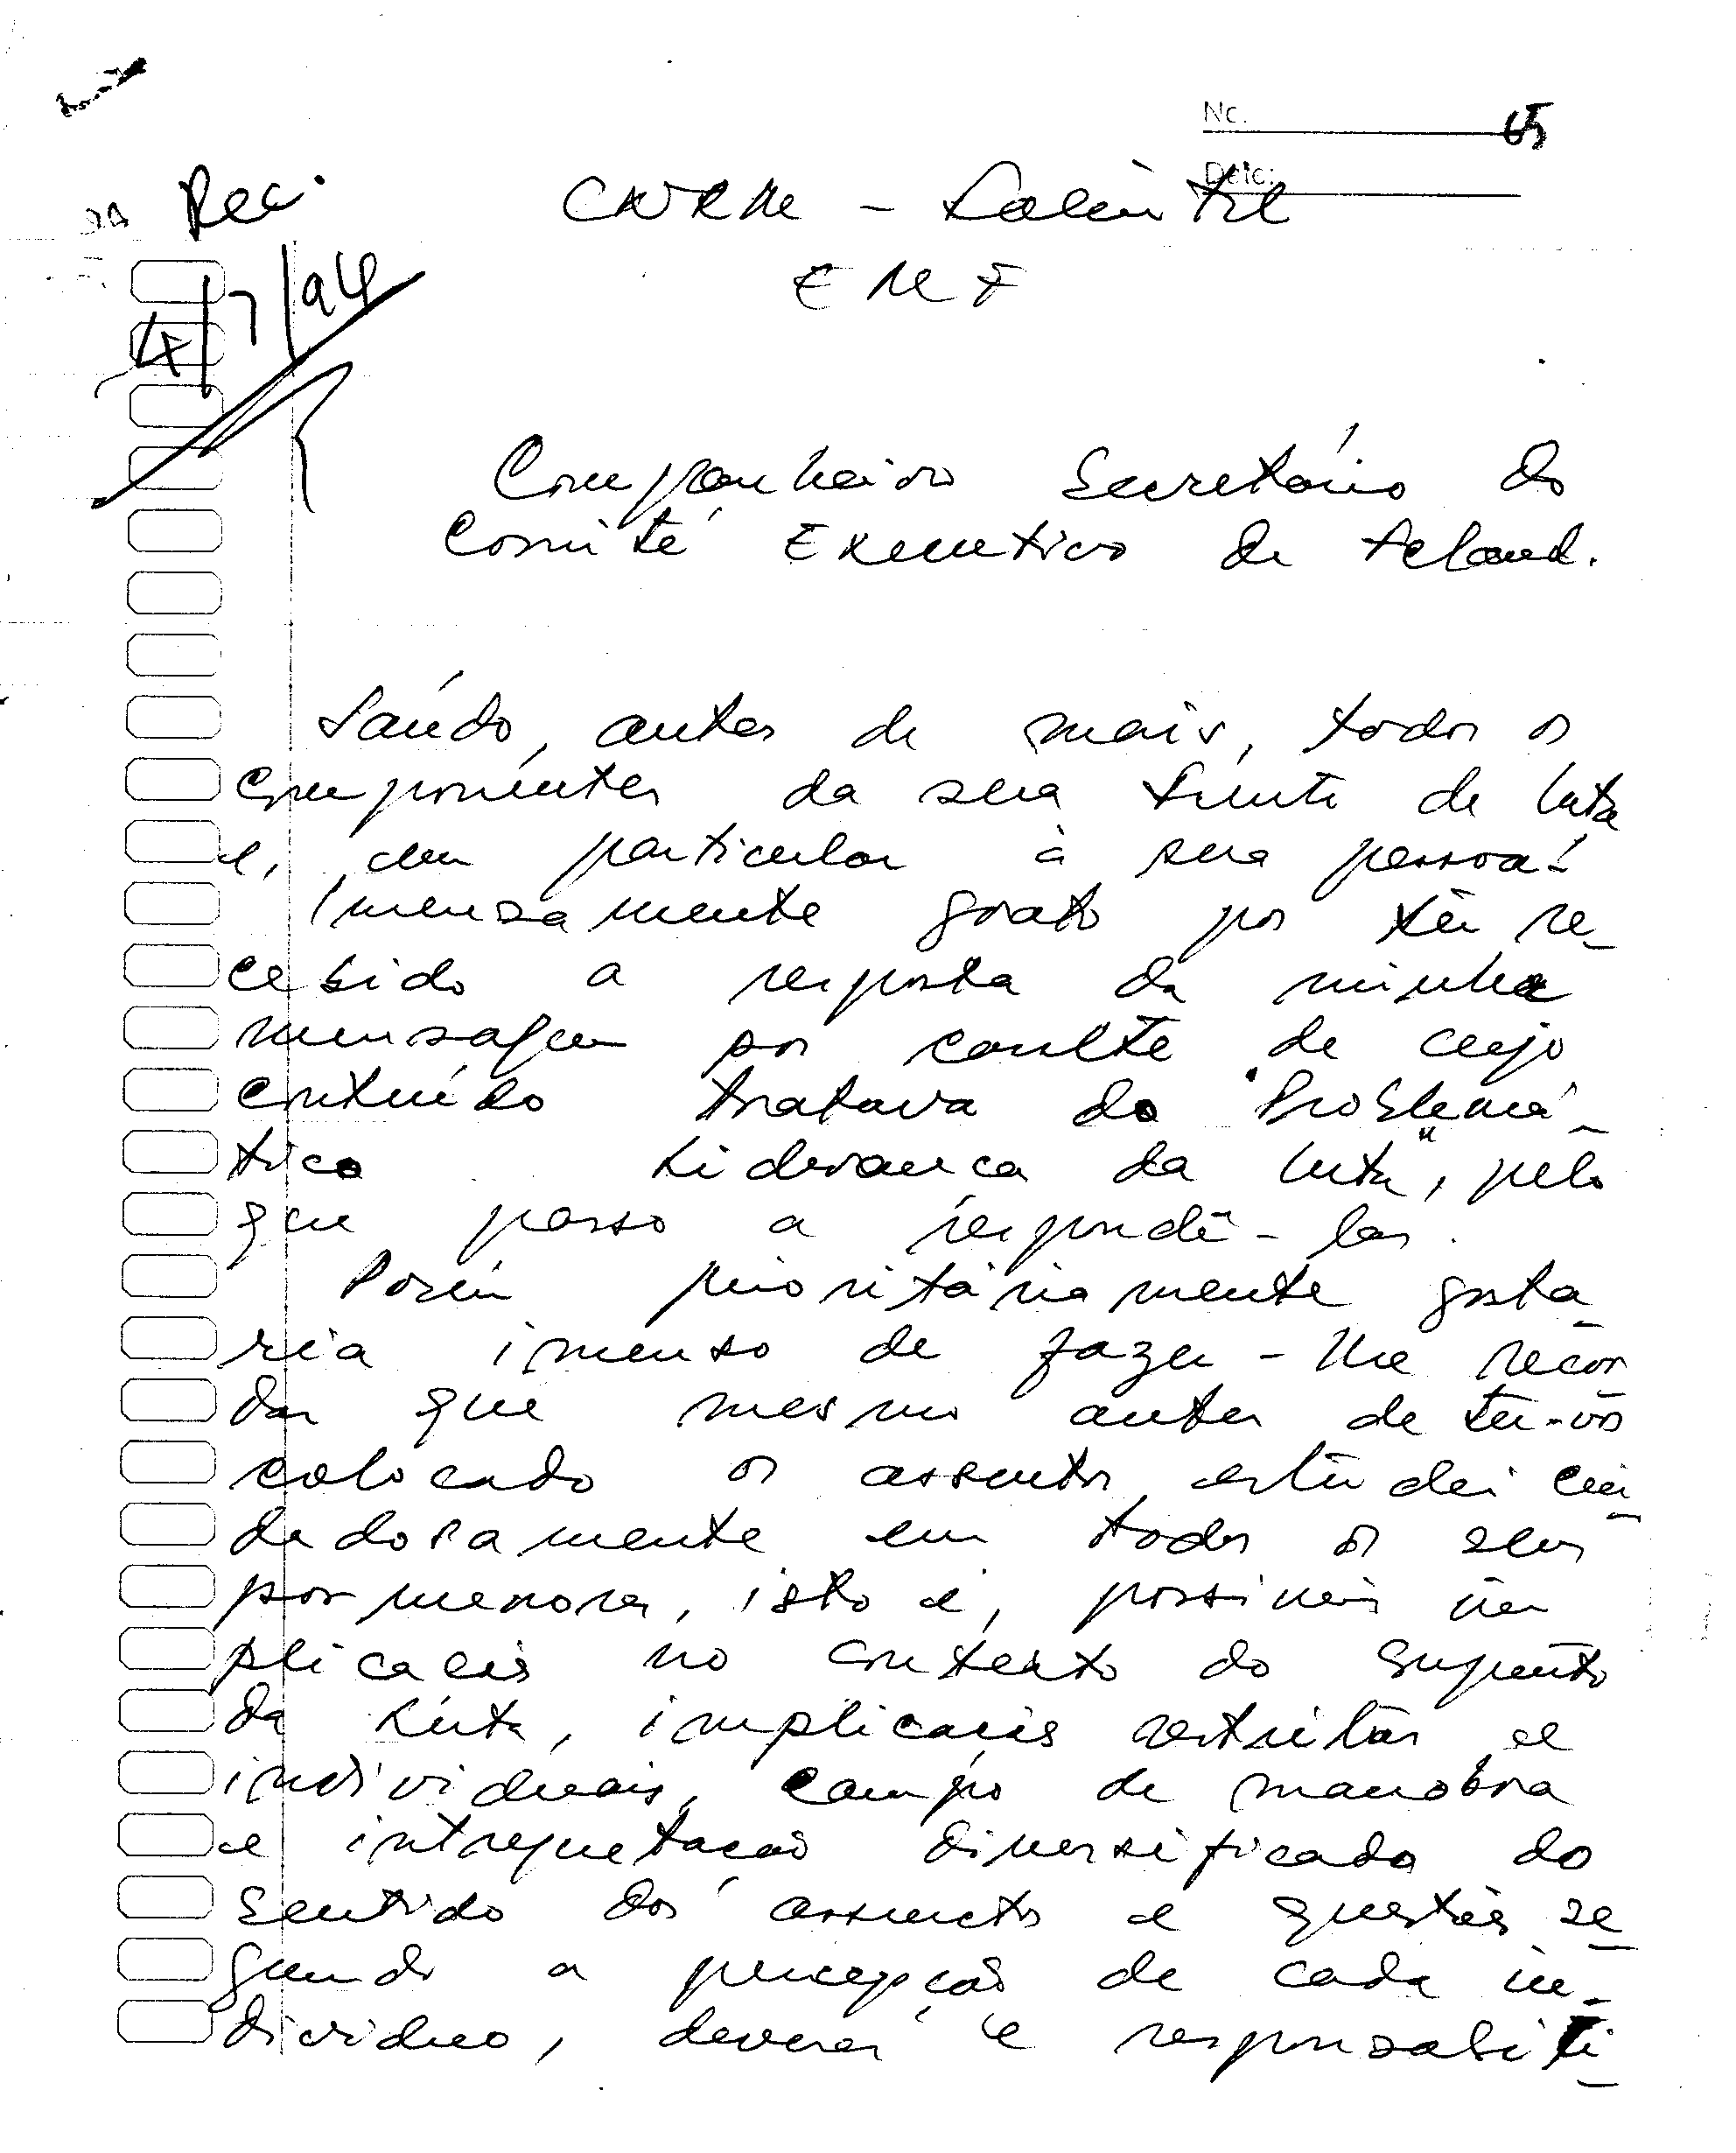 No. 65
Date:
Rec.
4/7/94
CNRM - Falintil
E M F
Companheiro Secretário do
Comité Executivo da Feland.
Saúdo, antes de mais, todos os
componentes da sua frente de luta
e, em particular à sua pessoa!
Imensamente grato por têr re-
cebido a resposta da minha
mensagem por cauete de cujo
conteúdo tratava da "Problemá-
tica Liderança da luta", pelo
que passo a respondê-las.
Porém prioritáriamente gosta-
ria imenso de fazer-lhe recor
dar que mesmo antes de têr-vos
colocado os assuntos, estudei cui-
dadosamente em todos os seus
pormenores, isto é, possiveis im
plicacões no contexto do
da Luta, implicacões restritas e
individuais, campo de manobra
e intrepretacão diversificada do
sentido dos assunctos e questões se-
gundo a percepção de cada in-
dividuo, deveres e responsabili-